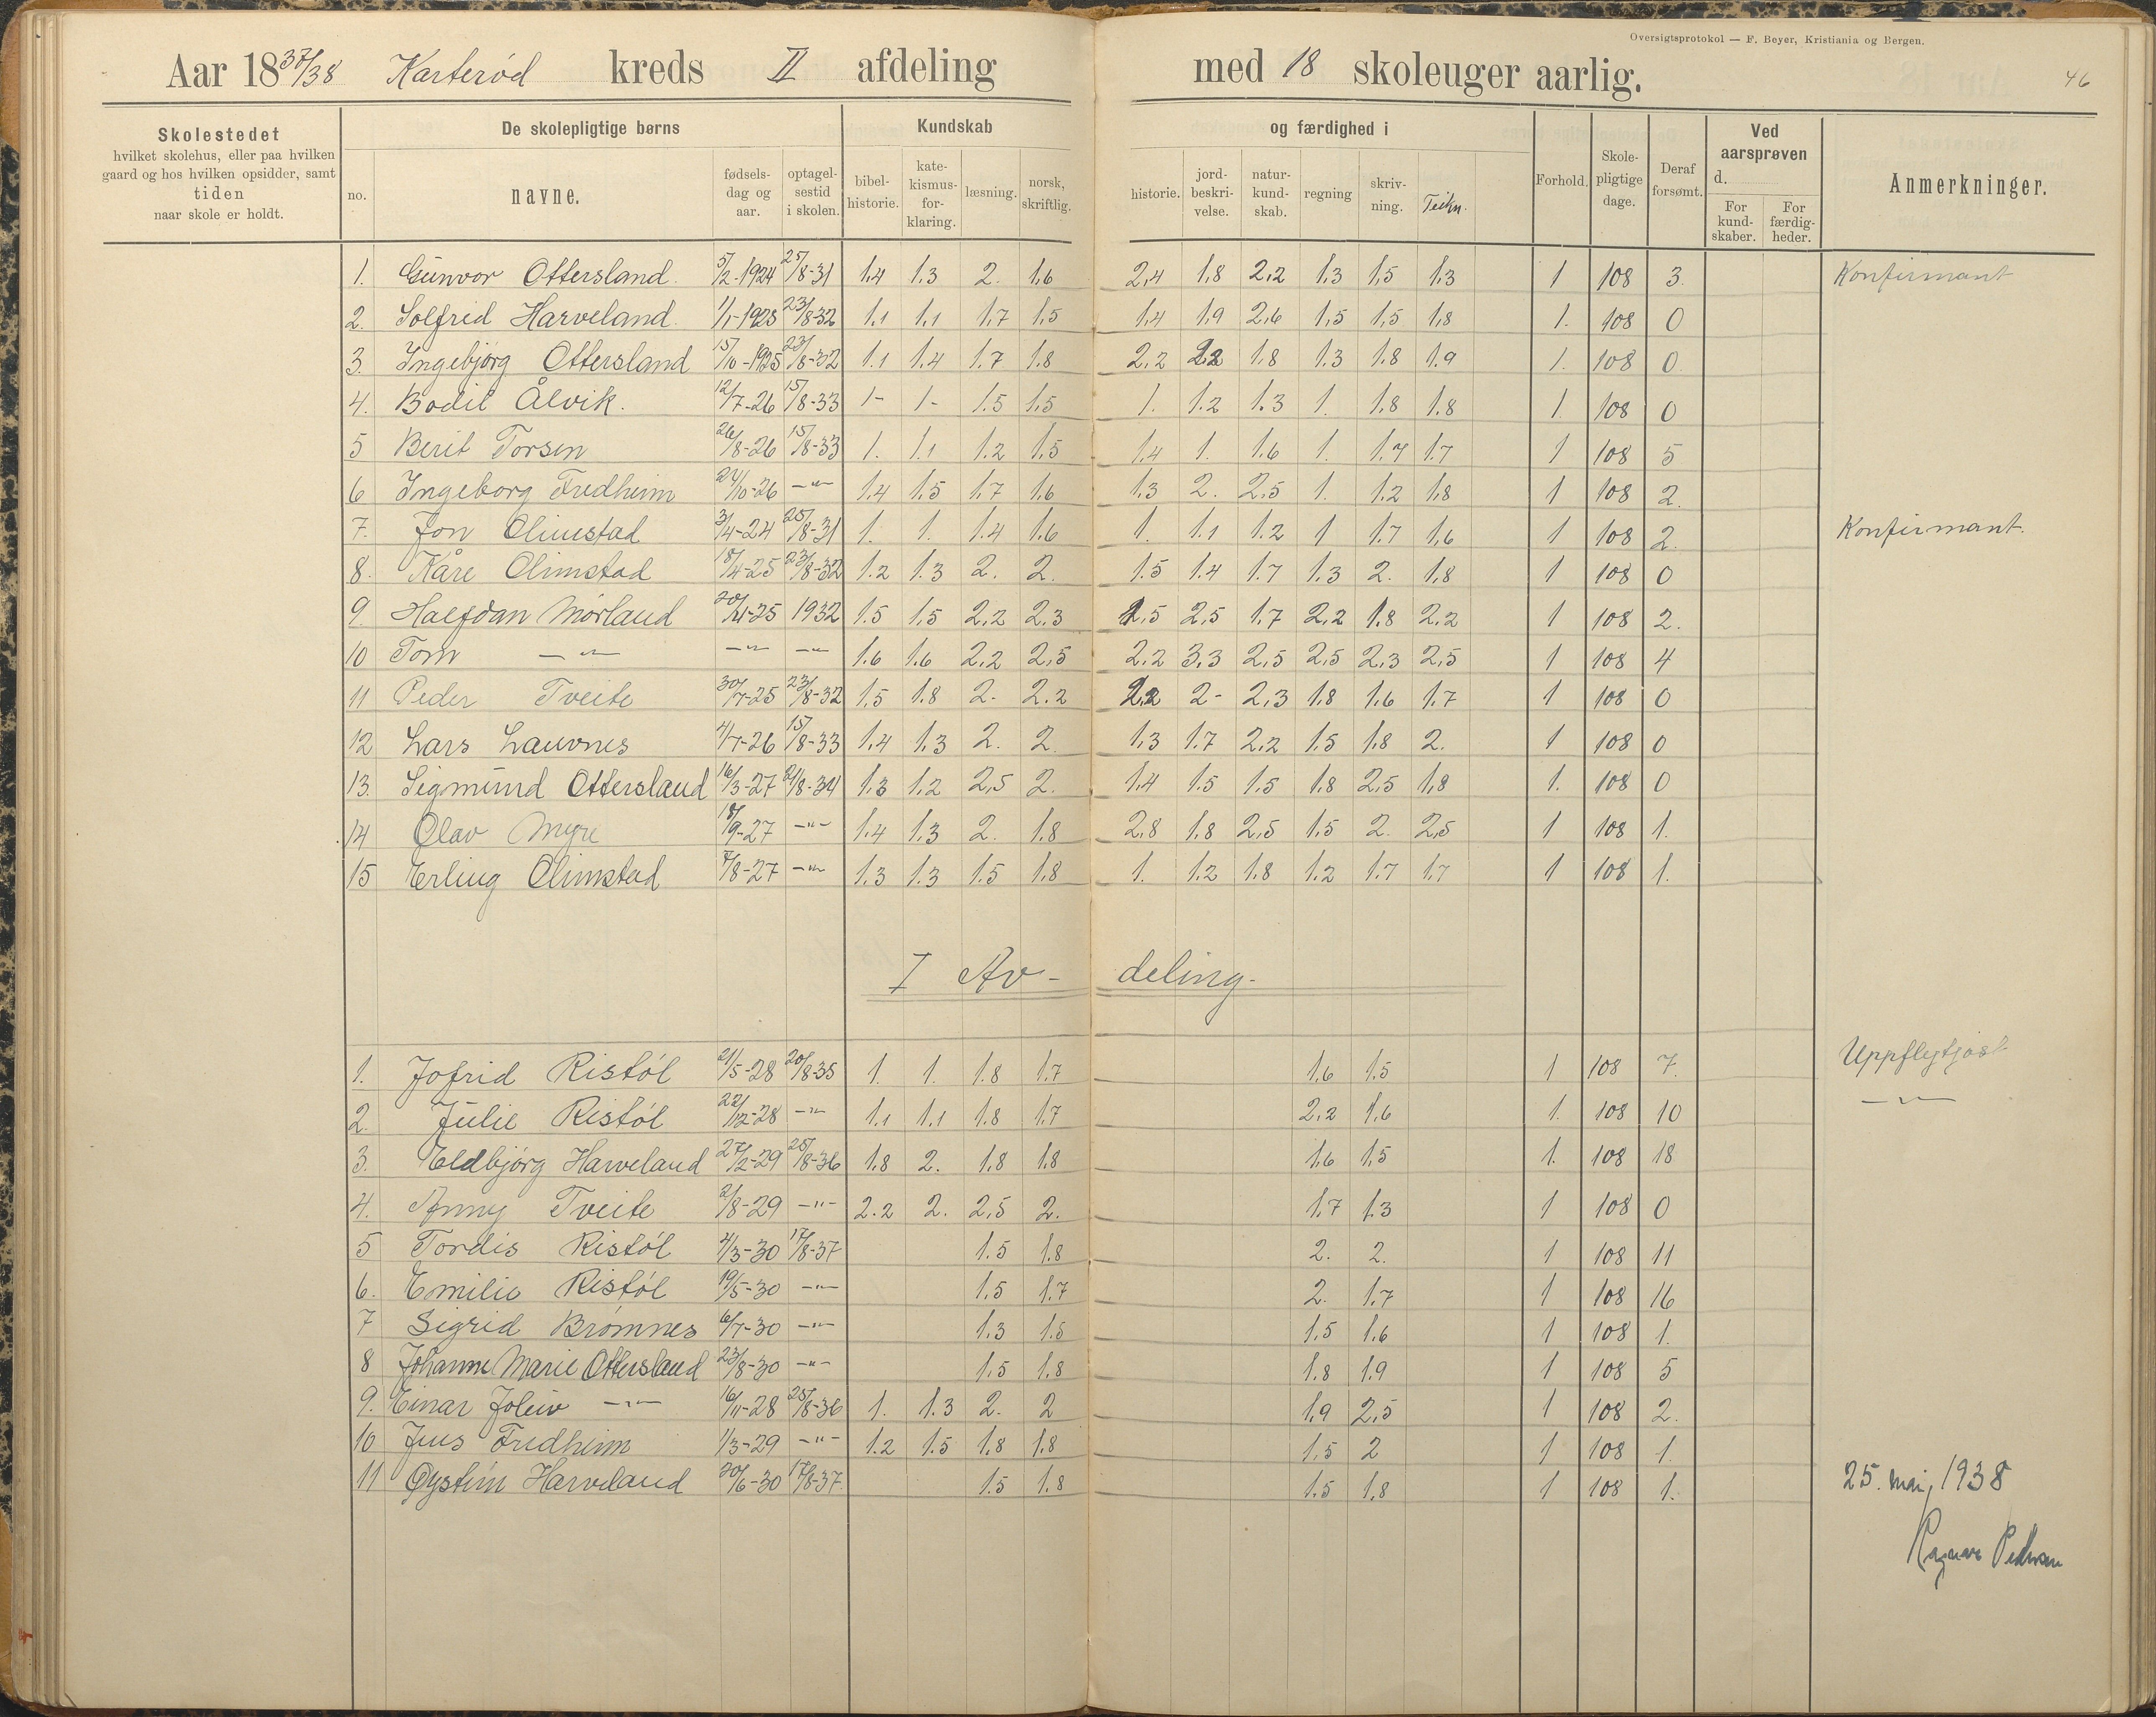 Oversigtsprotokol — F. Beyer, Kristiania og Bergen.
Aar 1837/38 Karterød kreds II afdeling med 18 skoleuger aarlig.
46
Skolestedet hvilket skolehus, eller paa hvilken gaard og hos hvilken opsidder, samt tiden naar skole er holdt.
De skolepligtige børns
Kundskab og færdighed i
Ved aarsprøven d.
no. navne. fødsels-dag og aar. optagel-sestid i skolen. bibel-historie. kate-kismus-for-klaring. læsning. norsk, skriftlig. historie. jord-beskri-velse. natur-kund-skab. regning skriv-ning. Teikn. Forhold. Skole-pligtige dage. Deraf forsømt. For kund-skaber. For færdig-heder. Anmerkninger.
1. Gunvor Ottersland. 5/2-1924 25/8-31 1,4 1,3 2. 1,6 2,4 1,8 2,2 1,3 1,5 1,3 1 108 3. Konfirmant
2. Solfrid Harveland. 1/1-1925 23/8-32 1,1 1,1 1,7 1,5 1,4 1,9 2,6 1,5 1,5 1,8 1. 108 0
3. Ingebjørg Ottersland 15/10-1925 23/8-32 1.1 1.4 1.7 1.8 2,2 2.2 1.8 1.3 1.8 1.9 1. 108 0.
4. Bodil Ålvik. 12/7-26 15/8-33 1- 1- 1.5 1,5 1. 1.2 1.3 1. 1,8 1.8 1. 108 0
5 Berit Torsen 26/8-26 15/8-33 1. 1.1 1.2 1.5 1.4 1. 1.6 1. 1.7 1.7 1 108 5
6 Ingeborg Fredheim 24/10-26 -"- 1.4 1.5 1.7 1.6 1.3 2. 2.5 1. 1.2 1.8 1 108 2.
7. Jon Olimstad 3/4-24 25/8-31 1. 1. 1.4 1.6 1. 1.1 1.2 1 1.7 1,6 1 108 2. Konfirmant.
8. Kåre Olimstad 18/4-25 23/8-32 1.2 1.3 2. 2. 1.5 1.4 1.7 1.3 2. 1.8 1 108 0
9. Halfdan Mørland 20/11-25 1932 1.5 1,5 2,2 2.3 1,5 2,5 1.7 2,2 1.8 2,2 1 108 2.
10 Tom -"- -"- -"- 1.6 1.6 2,2 2,5 2,2 3,3 2,5 2,5 2,3 2,5 1 108 4
11 Peder Tveite 30/7-25 23/8-32 1.5 1.8 2- 2.2 2,2 2- 2,3 1.8 1.6 1.7 1 108 0
12 Lars Lauvnes 4/7-26 15/8-33 1.4 1.3 2. 2. 1.3 1.7 2,2 1.5 1.8 2. 1 108 0
13. Sigmund Ottersland 16/3-27 21/8-34 1.3 1.2 2,5 2. 1.4 1.5 1.5 1.8 2,5 1,8 1. 108 0
14 Olav Myre 18/9-27 -"- 1.4 1.3 2. 1.8 2,8 1.8 2,5 1.5 2. 2,5 1 108 1.
15 Erling Olimstad 7/8-27 -"- 1.3 1.3 1.5 1.8 1. 1.2 1.8 1.2 1.7 1.7 1 108 1.
I Av-deling.
1. Jofrid Ristøl 21/5-28 20/8-35 1. 1. 1.8 1.7 1,6 1.5 1 108 7.
2. Julie Ristøl 22/12-28 -"- 1.1 1.1 1.8 1.7 2,2 1,6 1. 108 10 -"-
3. Eldbjørg Harveland 27/2-29 25/8-36 1.8 2. 1.8 1.8 1.6 1.5 1. 108 18
4. Anny Tveite 2/8-29 -"- 2.2 2. 2,5 2. 1.7 1.3 1 108 0
5 Tordis Ristøl 4/3-30 17/8-37 1.5 1.8 2. 2. 1 108 11
6. Emilie Ristøl 19/5-30 -"- 1.5 1.7 2. 1.7 1 108 16
7 Sigrid Brømnes 6/7-30 -"- 1.3 1.5 1,5 1.6 1 108 1.
8 Johanne Marie Ottersland 23/8-30 -"- 1,5 1.8 1.8 1.9 1 108 5
9. Einar Joleiv -"- 16/11-28 25/8-36 1. 1.3 2. 2 1,9 2,5 1 108 2.
10 Jens Fredheim 1/3-29 -"- 1.2 1.5 1.8 1.8 1.5 2 1 108 1.
11 Øystein Harveland 20/6-30 17/8-37. 1.5 1.8 1.5 1,8 1 108 1.
25. mai, 1938
Ragnar Pedersen